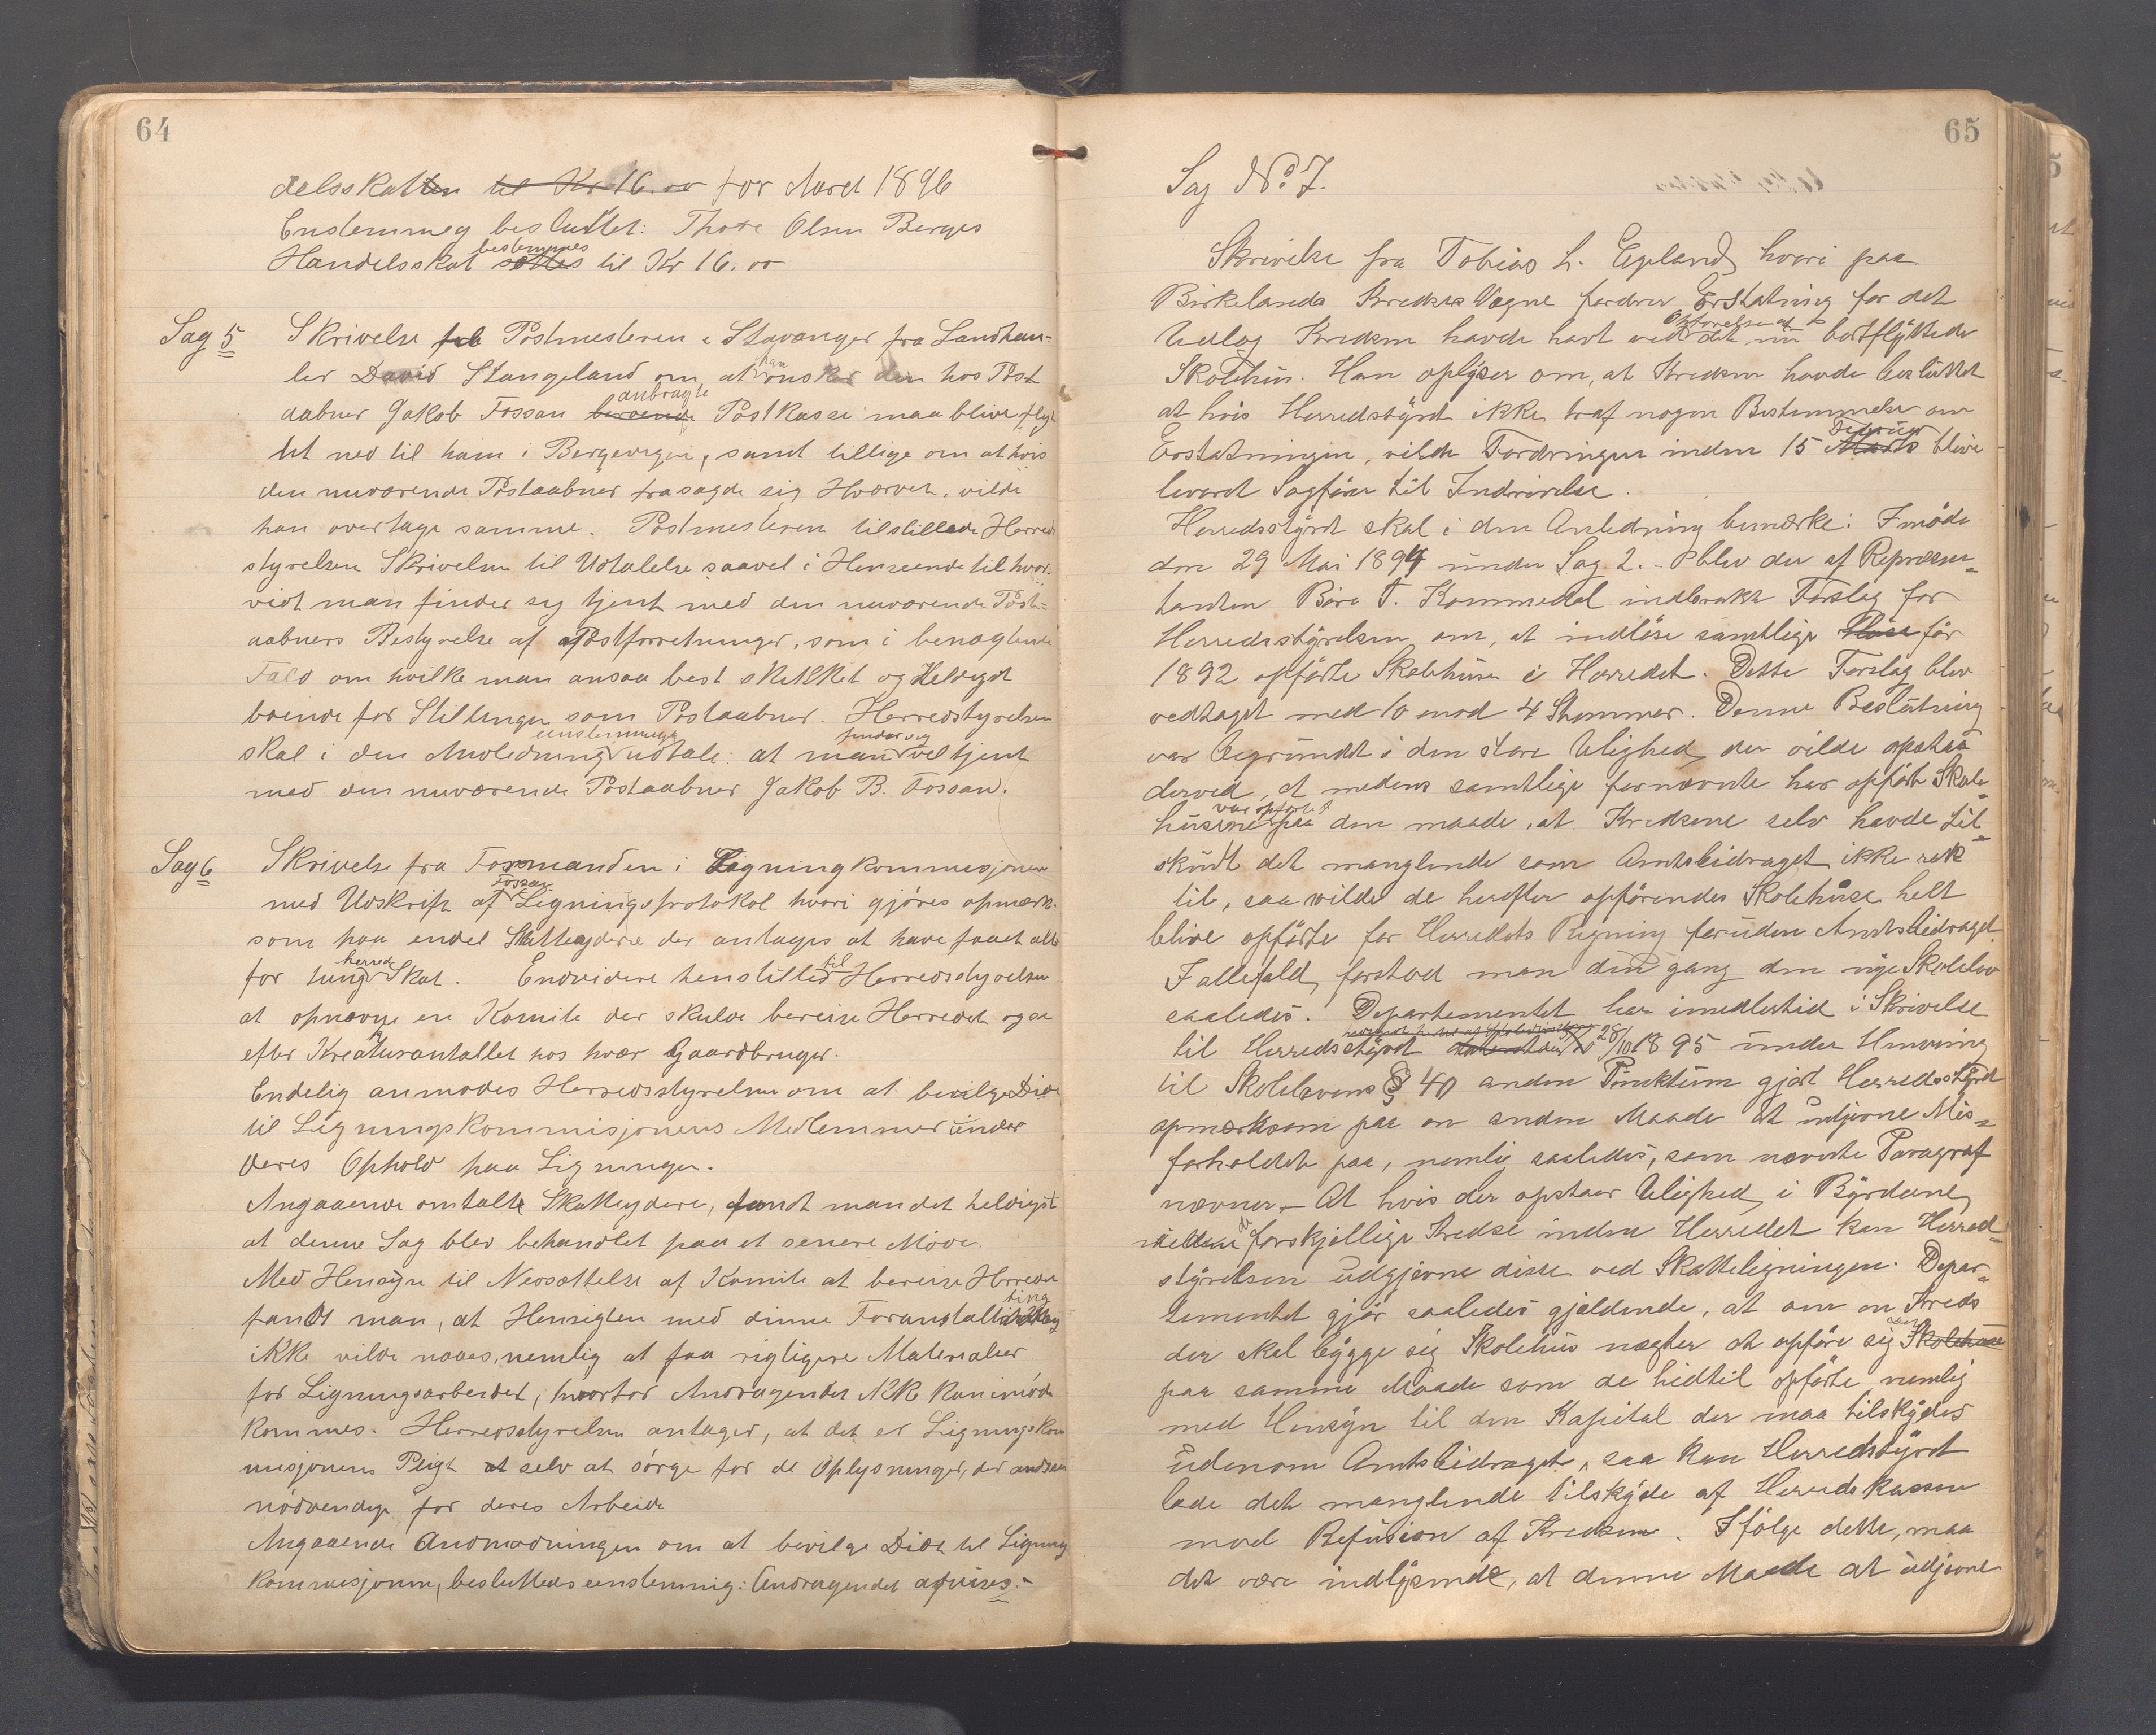 64
delsskatten til Kr 16.00 for Aaret 1896
Enstemmeg besluttet: Thore Olsen Berges
bestemmes
Handelsskat sættes til Kr 16.00
Sag 5 Skrivelse til Postmesteren i Stavanger fra Landhan-
ler David Stangeland om, at han ønsker den hos Post
anbragte
aabner Jakob Fossan Postkasse maa blive flyt
tet ned til ham i Bergevigen, samt tillige om at hvis
den nuværende Postaabner frasagde sig Hvervet, vilde
han overtage samme. Postmesteren tilstillede Herred
styrelsen Skrivelsen til Udtalelse saavel i Henseende til hvor-
vidt man finder sig tjent med den nuværende Post-
aabners Bestyrelse af Postforretninger, som i benægtende
Fald om hvilke man ansaa best skikket og heldigst
boende for Stillingen som Postaabner. Herredstyrelsen
enstemmig finder sig
skal i den Anledning udtale: at man vel tjent
med den nuværende Postaabner Jakob B. Fossan.
Sag 6 Skrivelse fra Formanden i Ligningkommisjonen
Fossan
med Udskrift af Ligningsprotokol hvori gjøres opmærk-
som paa endel Skatteydere der antages at have faaet alt
herred til
for tung Skat. Endvidere henstilles Herredsstyrelsen
at opnævne en Komite der skulde bereise Herredet og se
efter Kreaturantallet hos hvær Gaardbruger.
Endelig anmodes Herredsstyrelsen om at bevilge Diæt
til Ligningskommisjonens Medlemmer under
deres Ophold paa Ligningen.
Angaaende omtalte Skatteydere, fandt man det heldigst
at denne Sag blev behandlet paa et senere Møde
Med Hensyn til Nedsættelse af Komite at bereise Herredet
ting
fandt man, at Hensigten med denne Foranstaltning
ikke vilde naaes, nemlig at faa rigtigere Materialier
for Ligningsarbeidet, hvorfor Andragendet ikke kan imøde
kommes. Herredsstyrelsen antager, at det er Ligningskom
misjonens Pligt at selv at sørge for de Oplysninger, der ansees
nødvendige for deres Arbeide
Angaaende Andmodningen om at bevilge Diæt til Lignings
kommisjonen, besluttedes eenstemmig: Andragendet afvises.-
65
Sag No. 7.
Skrivelse fra Tobias L. Epland hvori paa
Birkelands Kredses Vegne fordrer Erstatning for det
Opførelse af
Udlæg Kredsen havde havt ved det nu bortflyttede
Skolehus. Han oplyser om, at Kredsen havde besluttet
at hvis Herredstyret ikke traf nogen Bestemmelse om
Februar
Erstatningen, vilde Fordringen inden 15 Marts blive
leveret Sagfører til Indrivelse.
Herredsstyret skal i den Anledning bemerke: I møde
den 29 Mai 1894 under Sag 2. blev der af Repræsen-
tanten Bore T. Kommedal indbrakt Forslag for
Herredsstyrelsen om, at indløse samtlige før
1892 opførte Skolehuse i Herredet. Dette Forslag blev
vedtaget med 10 mod 4 Stemmer. Denne Beslutning
var begrundet i den store Ulighed der vilde opstaa
derved, at medens samtlige fornævnte har opført Skole-
var opført
husene paa den maade, at Kredsene selv havde til-
skudt det manglende som Amtsbidraget ikke rak
til, saa vilde de herefter opførendes Skolehuse helt
blive opførte for Herredets Regning foruden Amtsbidraget.
I allefald forstod man den gang den nye Skolelov
saaledes. Departementet har imedlertid i Skrivelse
til Herredsstyret 28/10 1895 under Henvisning
til Skolelovens § 40 anden Punktum gjort Herredsstyret
opmærksom paa en anden Maade at udjevne Mis-
forholdet paa, nemlig saaledes, som nævnte Paragraf
nævner,- At hvis der opstaar Ulighed i Byrderne
de
mellem forskjellige Kredse inden Herredet kan Herred-
styrelsen udgjevne disse ved Skatteligningen. Depar-
tementet gjør saaledes gjældende, at om en Kreds
der skal bygge sig Skolehus nægter at opføre sig Skolehuse
paa samme Maade som de hidtil opførte nemlig
med Hensyn til den Kapital der maa tilskydes
udenom Amtsbidraget, saa kan Herredstyret
lade det manglende tilskyde af Herredskassen
mod Refusion af Kredsen. Ifølge dette, maa
det være indlysende, at denne Maade at udjevne